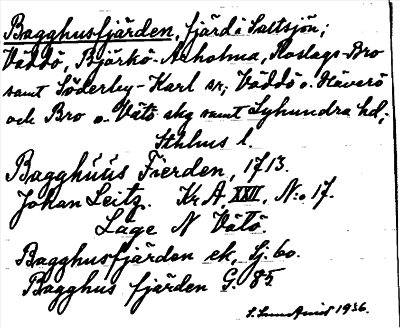 Bagghusfjärden, fjärd i Saltsjön;
Väddö, Björkö-Arholma, Roslags-Bro
samt Söderby-Karl sn; Väddö o. Häverö
och Bro o. Vätö skg samt Lyhundra hd;
Sthlms l.
Bagghúùs Fierden, 1713.
Johan Leitz. Kr. A, XXII, N:o 17.
Läge N Vätö.
Bagghusfjärden ek, Sj. 60.
Bagghus fjärden G. 85.
1936.